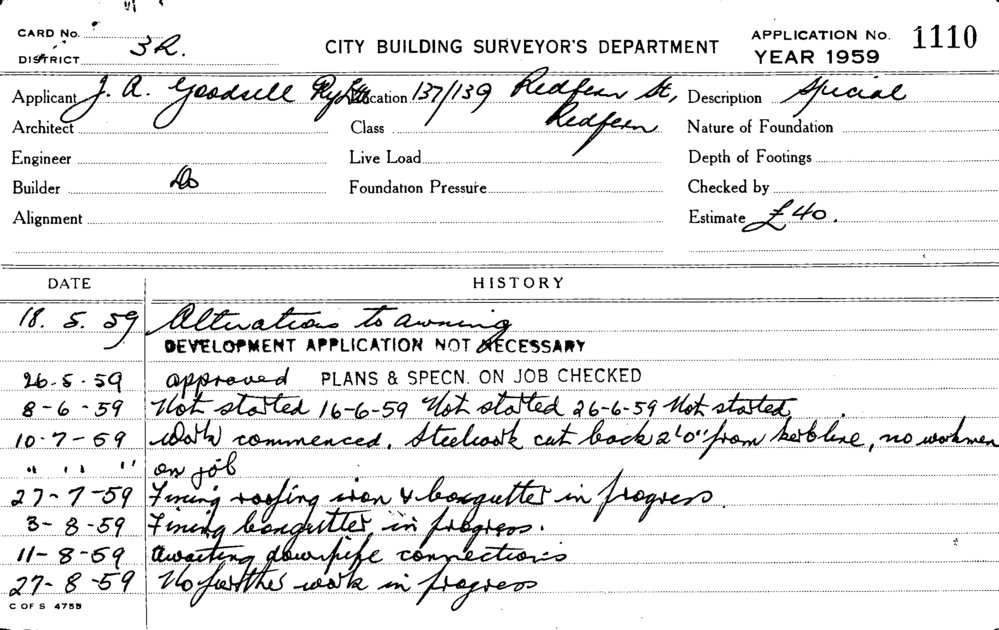 CARD No.
DISTRICT 3R.
CITY BUILDING SURVEYOR'S DEPARTMENT
APPLICATION No. 1110
YEAR 1959
Applicant J. A. Goodsell Pty Ltd Location 137/139 Redfern St, Redfern Description Special
Architect Class Nature of Foundation
Engineer Live Load Depth of Footings
Builder Do Foundation Pressure Checked by
Alignment Estimate £40.
DATE HISTORY
18. 5. 59 Alterations to awning
DEVELOPMENT APPLICATION NOT NECESSARY
26-5-59 approved PLANS & SPECN. ON JOB CHECKED
8-6-59 Not started 16-6-59 Not started 26-6-59 Not started
10-7-59 Work commenced. Steelwork cut back 2'0" from kerbline, no workmen
" " " on job
27-7-59 Fixing roofing iron & boxgutter in progress
3-8-59 Fixing boxgutter in progress.
11-8-59 Awaiting downpipe connections
27-8-59 No further work in progress
C OF S 4755